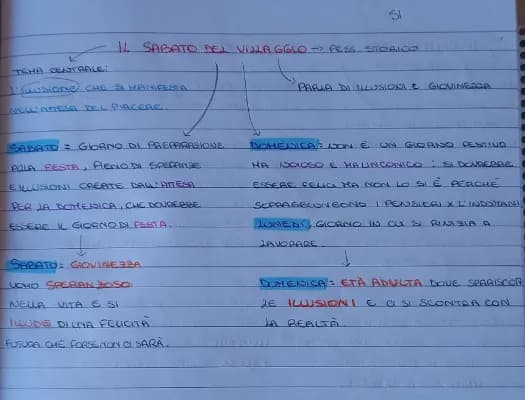 SI
IL SABATO DEL VILLAGGIO → PESS. STORICO
TEMA CENTRALE:
L'ILLUSIONE CHE SI MANIFESTA
NELL'ATTESA DEL PIACERE.
PARLA DI ILLUSIONI E GIOVINEZZA
SABATO = GIORNO DI PREPARAZIONE
ALLA FESTA, PIENO DI SPERANZE
E ILLUSIONI CREATE DALL'ATTESA
PER LA DOMENICA, CHE DOVREBBE
ESSERE IL GIORNO DI FESTA.
DOMENICA = NON È UN GIORNO FESTIVO
MA NOIOSO E MALINCONICO : SI DOVREBBE
ESSERE FELICI MA NON LO SI È PERCHÈ
SOPRAGGIUNGONO I PENSIERI X L'INDOMANI,
LUNEDÌ, GIORNO IN CUI SI RINIZIA A
LAVORARE.
SABATO = GIOVINEZZA
UOMO SPERANZOSO
NELLA VITA E SI
ILLUDE DI UNA FELICITÀ
FUTURA CHE FORSE NON CI SARÀ.
DOMENICA = ETÀ ADULTA DOVE SPARISCON
LE ILLUSIONI E CI SI SCONTRA CON
LA REALTÀ.